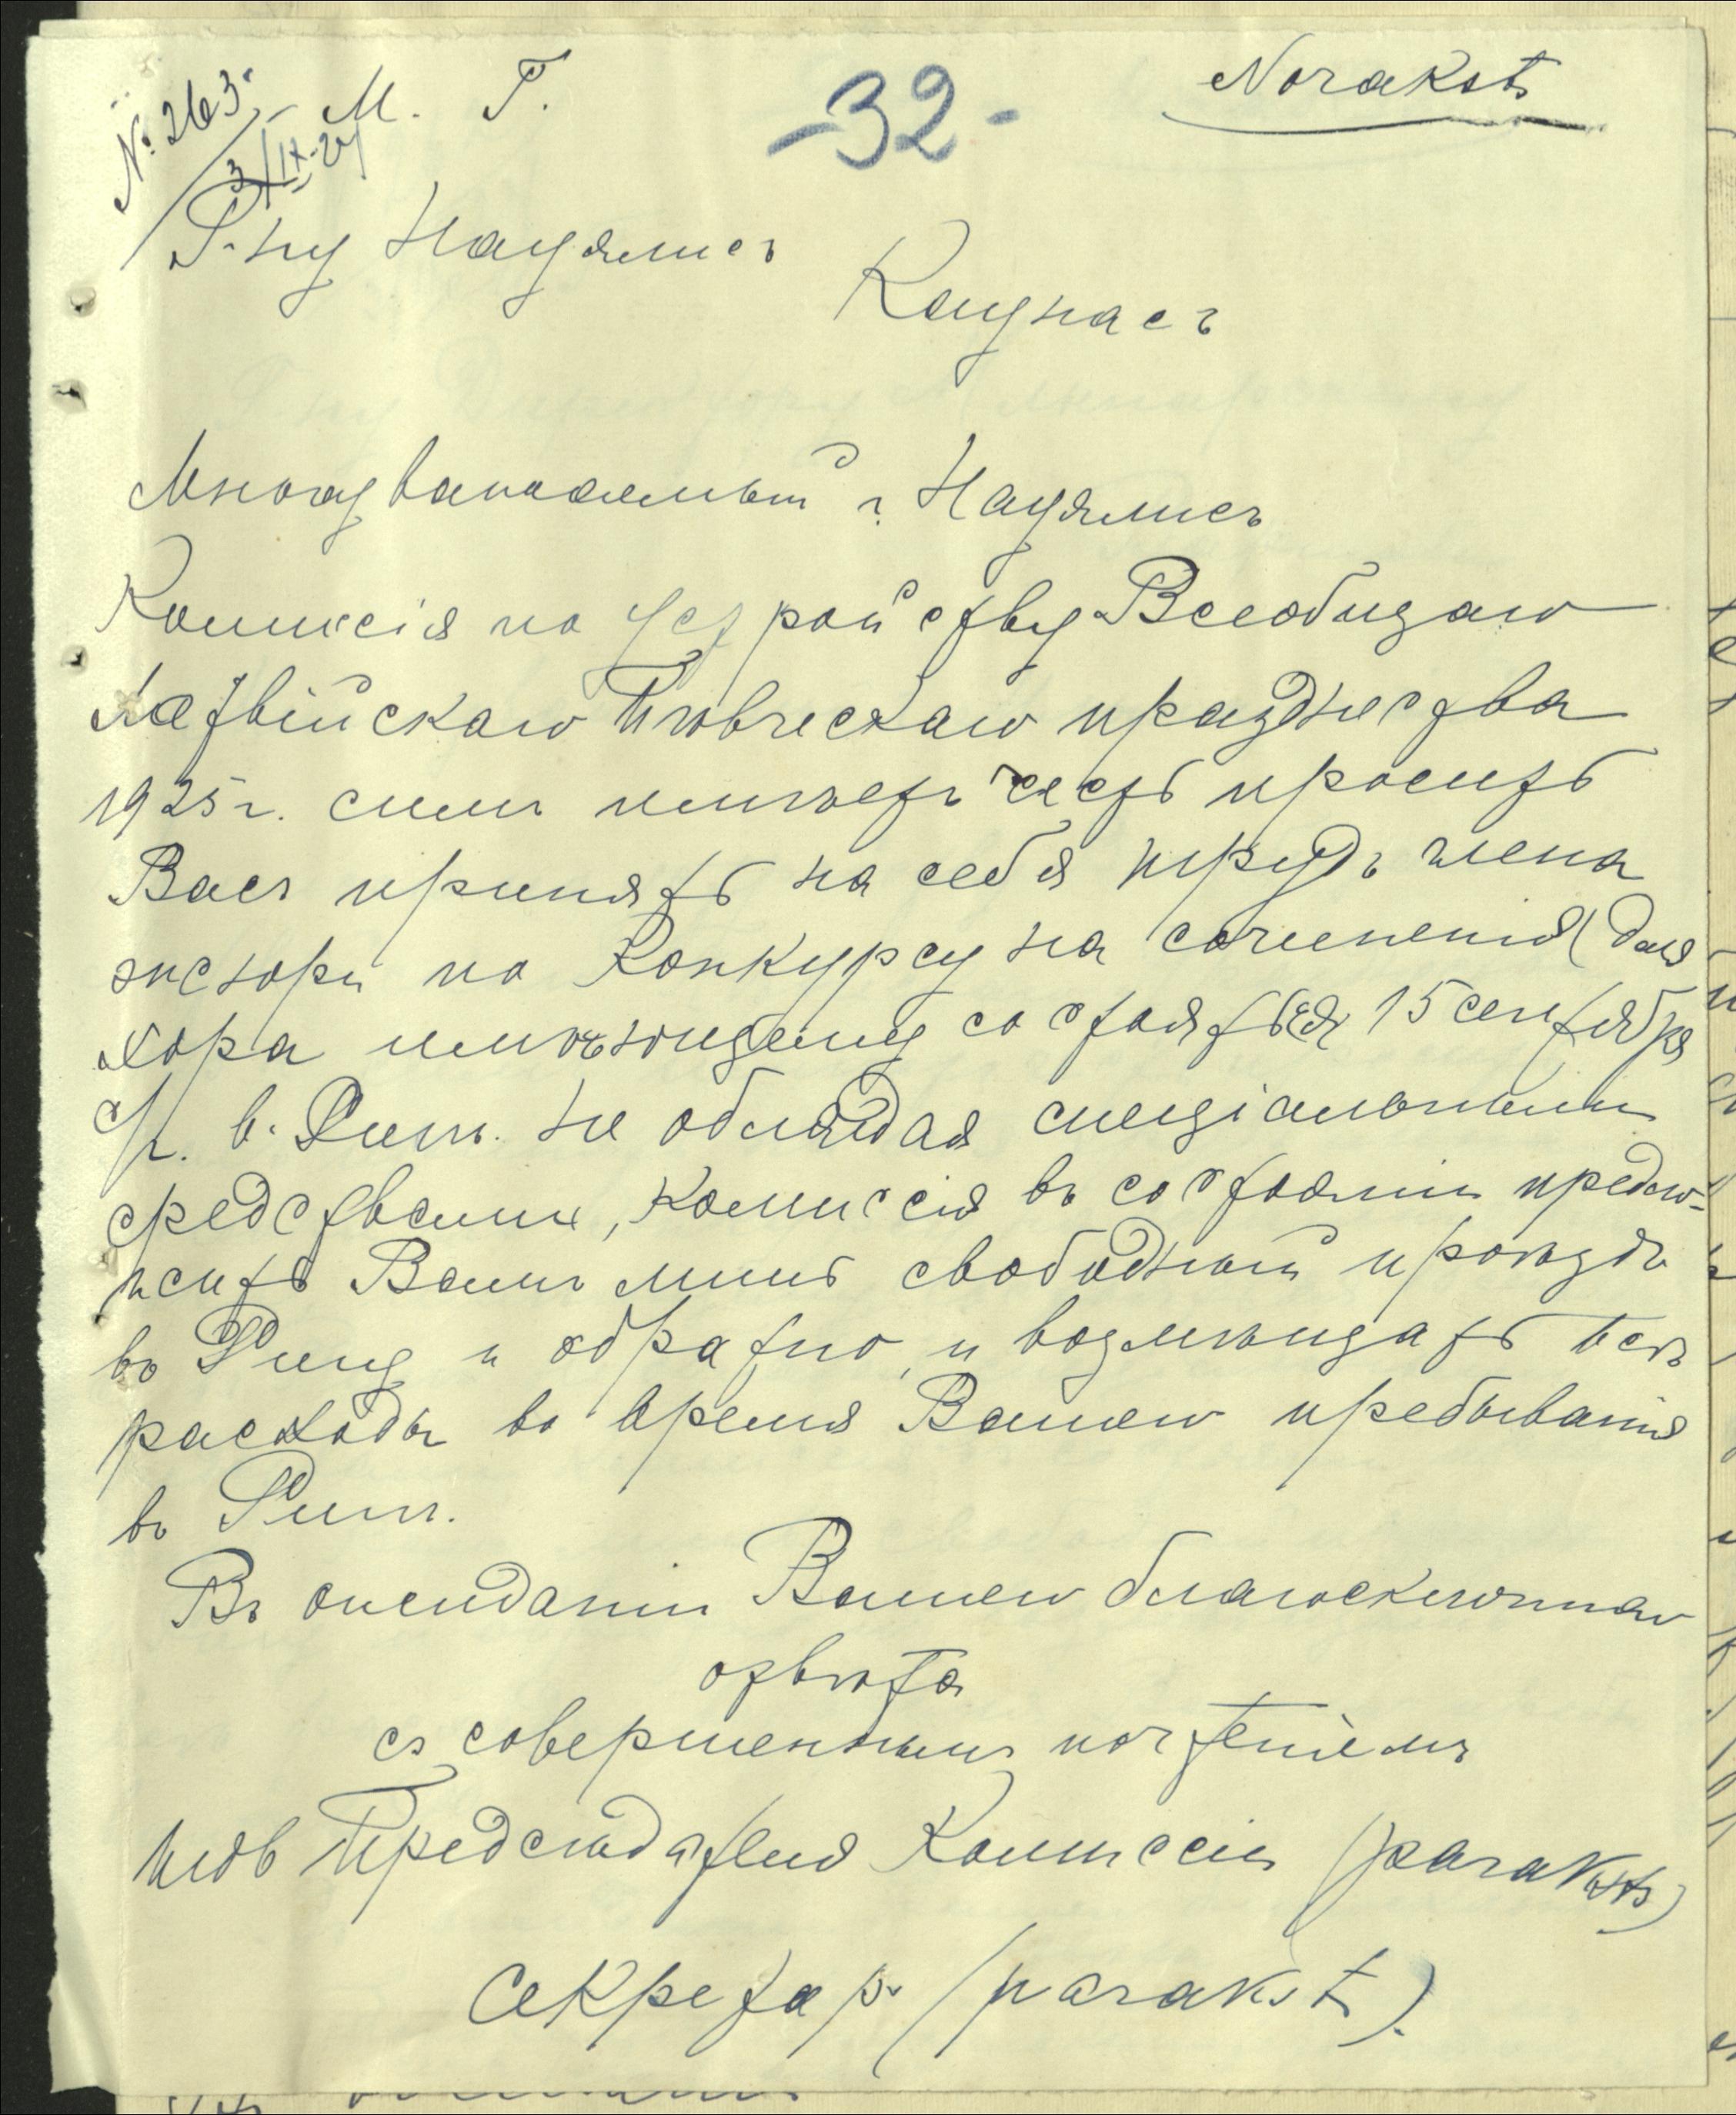 № 263.
3/IX-24
М. Г.
-32-
Noraksts
Г-ну Науялисъ
Каунасъ
Многоуважаемый г. Науялисъ
Коммисія по устройству Всеобщаго
Латвійскаго Пѣвческаго празднества
1925 г. симъ имѣетъ честь просить
Васъ принять на себя трудъ члена
жюри по Конкурсу на сочиненія для
хора имѣющему состояться 15 сентября
с/г. в. Ригѣ. Не обладая спеціальными
средствами, Комиссія въ состояніи предло-
жить Вамъ лишь свободный проѣздъ
въ Ригу и обратно, и возмѣщать всѣ
расходы во время Вашего пребыванія
въ Ригѣ.
Въ ожиданіи Вашего благосклоннаго
отвѣта
съ совершеннымъ почтеніемъ
Предсѣдателя Коммиссіи (paraksts)
Секретарь (paraksts).